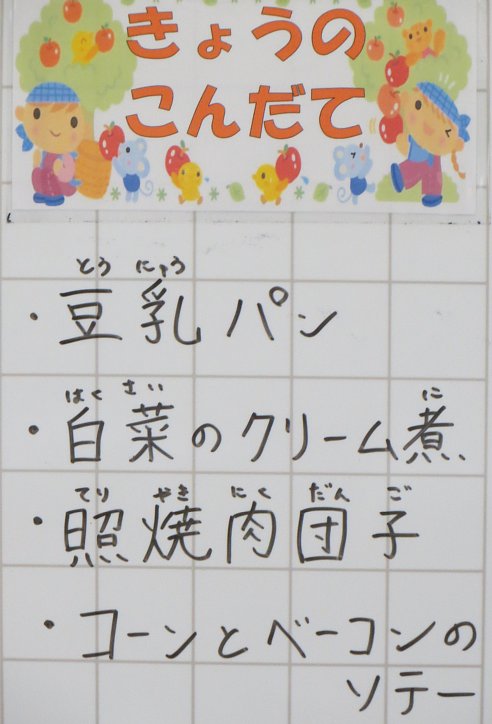 きょうの
こんだて
とう にゅう
・豆乳パン
はく さい に
・白菜のクリーム煮
てり やき にく だん ご
・照焼肉団子
・コーンとベーコンの
ソテー